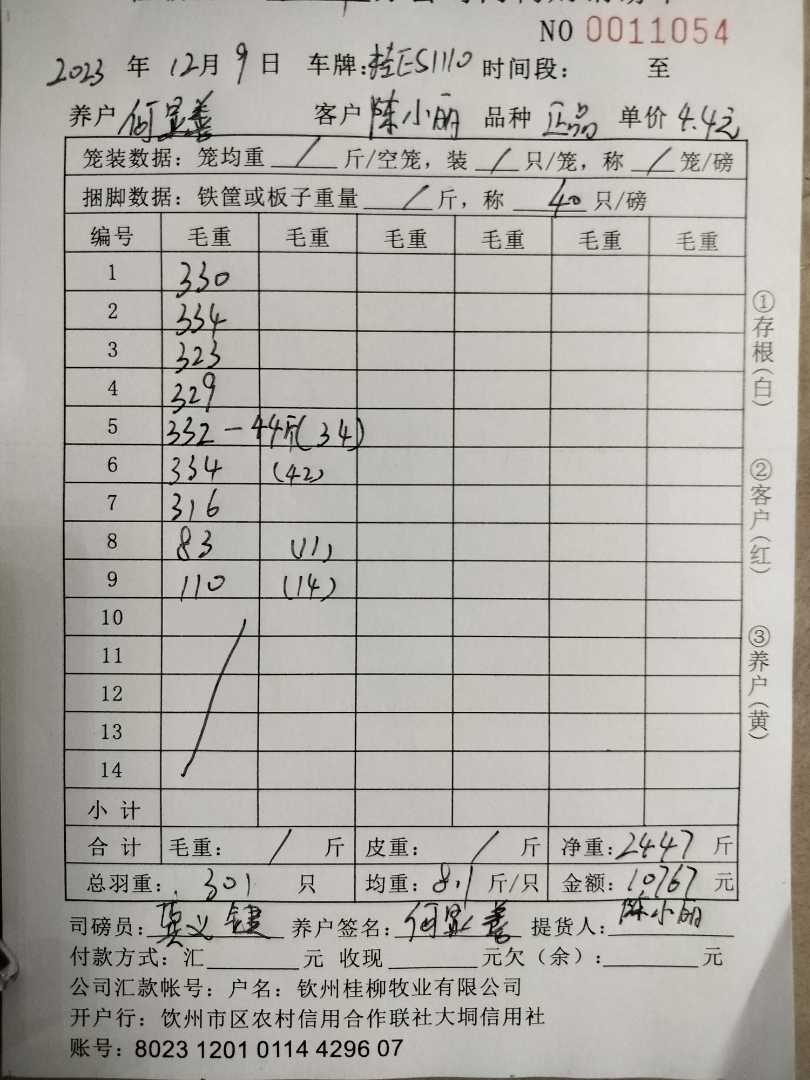 NO 0011054
2023 年 12月 9 日 车牌:桂ES1110 时间段: 至
养户 何显善 客户 陈小丽 品种 正品 单价 4.4元
笼装数据: 笼均重 / 斤/空笼, 装 / 只/笼, 称 / 笼/磅
捆脚数据: 铁筐或板子重量 / 斤, 称 40 只/磅
编号 毛重 毛重 毛重 毛重 毛重 毛重
1 330
2 334
3 323
4 329
5 332-44斤(34)
6 334 (42)
7 316
8 83 (11)
9 110 (14)
10
11
12
13
14
小计
合计 毛重: / 斤 皮重: / 斤 净重:2447 斤
总羽重: 301 只 均重:8.1 斤/只 金额:10767 元
司磅员: 莫义键 养户签名: 何显善 提货人: 陈小丽
付款方式:汇 元 收现 元欠(余): 元
公司汇款帐号: 户名: 钦州桂柳牧业有限公司
开户行: 饮州市区农村信用合作联社大垌信用社
账号: 8023 1201 0114 4296 07
①存根(白)
②客户(红)
③养户(黄)